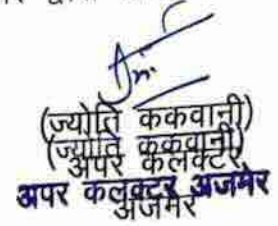 (ज्योति ककवानी)
(ज्योति ककवानी)
अपर कलेक्टर
अपर कलक्टर अजमेर
अजमेर